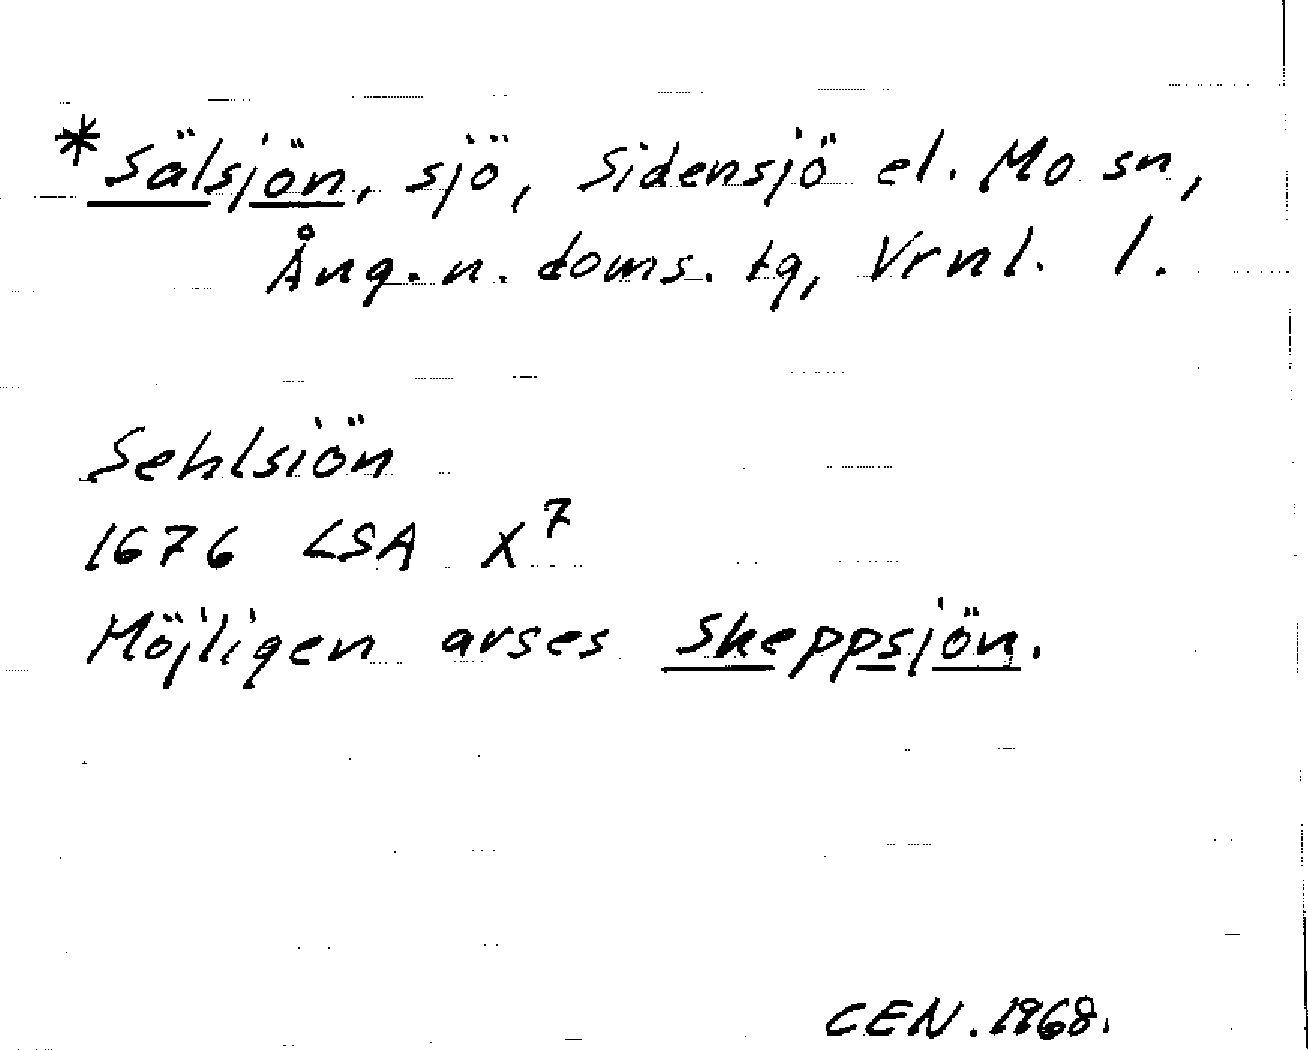 *Sälsjön, sjö, Sidensjö el. Mo sn,
Ång. n. doms. tg, Vrnl. l.
Sehlsiön
1676 LSA X7
Möjligen avses Skeppsjön.
CEN. 1968.